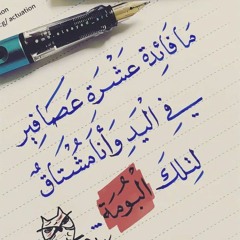 actuation
مَا فَائِدة عَشْرَة عَصَافِير
فِي الْيَدِ وَأَنَا مُشْتَاقٌ
لِتِلكَ الْبُومَة..